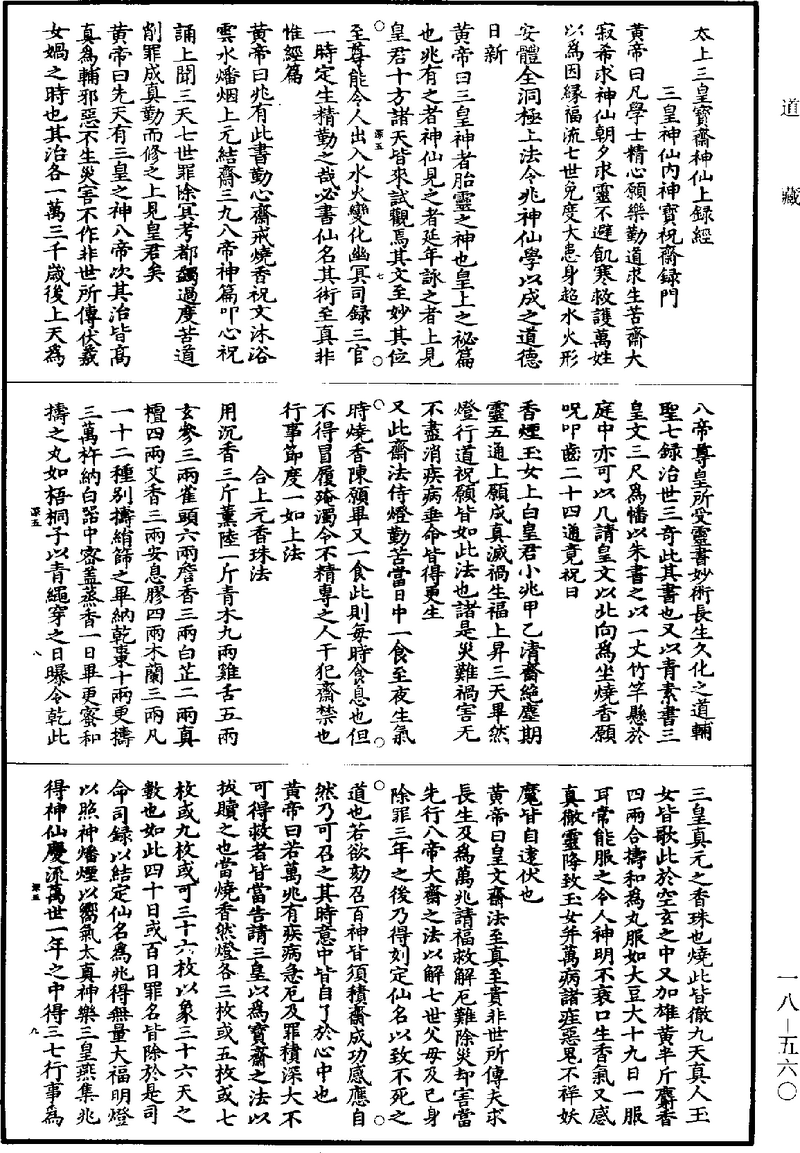 道藏
太上三皇寶齋神仙上録經
三皇神仙內神寶祝齋録門
黃帝曰凡學士精心願樂勤道求生苦齋大
寂希求神仙朝夕求靈不避飢寒救護萬姓
以爲因緣福流七世免度大患身超水火形
安體全洞極上法令兆神仙學以成之道德
日新
黃帝曰三皇神者胎靈之神也皇上之祕篇
也兆有之者神仙見之者延年詠之者上見
皇君十方諸天皆來試觀焉其文至妙其位
至尊能令人出入水火變化幽冥司録三官
一時定生精勤之哉必書仙名其術至真非
惟經篇
黃帝曰兆有此書勤心齋戒燒香祝文沐浴
雲水燔烟上元結齋三九八帝神篇叩心祝
誦上聞三天七世罪除冥考都蠲過度苦道
削罪成真勤而修之上見皇君矣
黃帝曰先天有三皇之神八帝次其治皆爲
真爲輔邪惡不生災害不作非世所傳伏羲
女媧之時也其治各一萬三千歲後上天爲
深五
七
八帝尊皇所受靈書妙術長生久化之道輔
聖七録治世三奇此其書也又以青素書三
皇文三尺爲幡以朱書之以一丈竹竿懸於
庭中亦可以几請皇文以北向爲坐燒香願
呪叩齒二十四通竟祝曰
香煙玉女上白皇君小兆甲乙清齋絕塵期
靈五通上願成真滅禍生福上昇三天畢然
燈行道祝願皆如此法也諸是災難禍害无
不盡消疾病垂命皆得更生
又此齋法侍燈勤苦當日中一食至夜生氣
時燒香陳願畢又一食此則每時食息也但
不得冒履殗濁令不精專之人干犯齋禁也
行事節度一如上法
合上元香珠法
用沉香三斤薰陸一斤青木九兩雞舌五兩
玄參三兩雀頭六兩詹香三兩白芷二兩真
檀四兩艾香三兩安息膠四兩木蘭三兩凡
一十二種別擣絹篩之畢納乾棗十兩更擣
三萬杵納白器中密蓋蒸香一日畢更蜜和
擣之丸如梧桐子以青繩穿之日曝令乾此
深五
八
三皇真元之香珠也燒此皆徹九天真人玉
女皆歌此於空玄之中又加雄黃半斤麝香
四兩合擣和爲丸服如大豆大十九日一服
耳常能服之令人神明不衰口生香氣又感
真徹靈降致玉女并萬病諸疰惡鬼不祥妖
魔皆自違伏也
黃帝曰皇文齋法至真至貴非世所傳夫求
長生及爲萬兆請福救解厄難除災却害當
先行八帝大齋之法以解七世父母及己身
除罪三年之後乃得刻定仙名以致不死之
道也若欲劾召百神皆須積齋成功感應自
然乃可召之其時意中皆自了於心中也
黃帝曰若萬兆有疾病急厄及罪積深大不
可得救者皆當告請三皇以爲寶齋之法以
拔贖之也當燒香然燈各三枚或五枚或七
枚或九枚或可三十六枚以象三十六天之
數也如此四十日或百日罪名皆除於是司
命司録以結定仙名爲兆得無量大福明燈
以照神燔煙以嚮氣太真神樂三皇燕集兆
得神仙慶流萬世一年之中得三七行事爲
深五
九
一八—五六〇